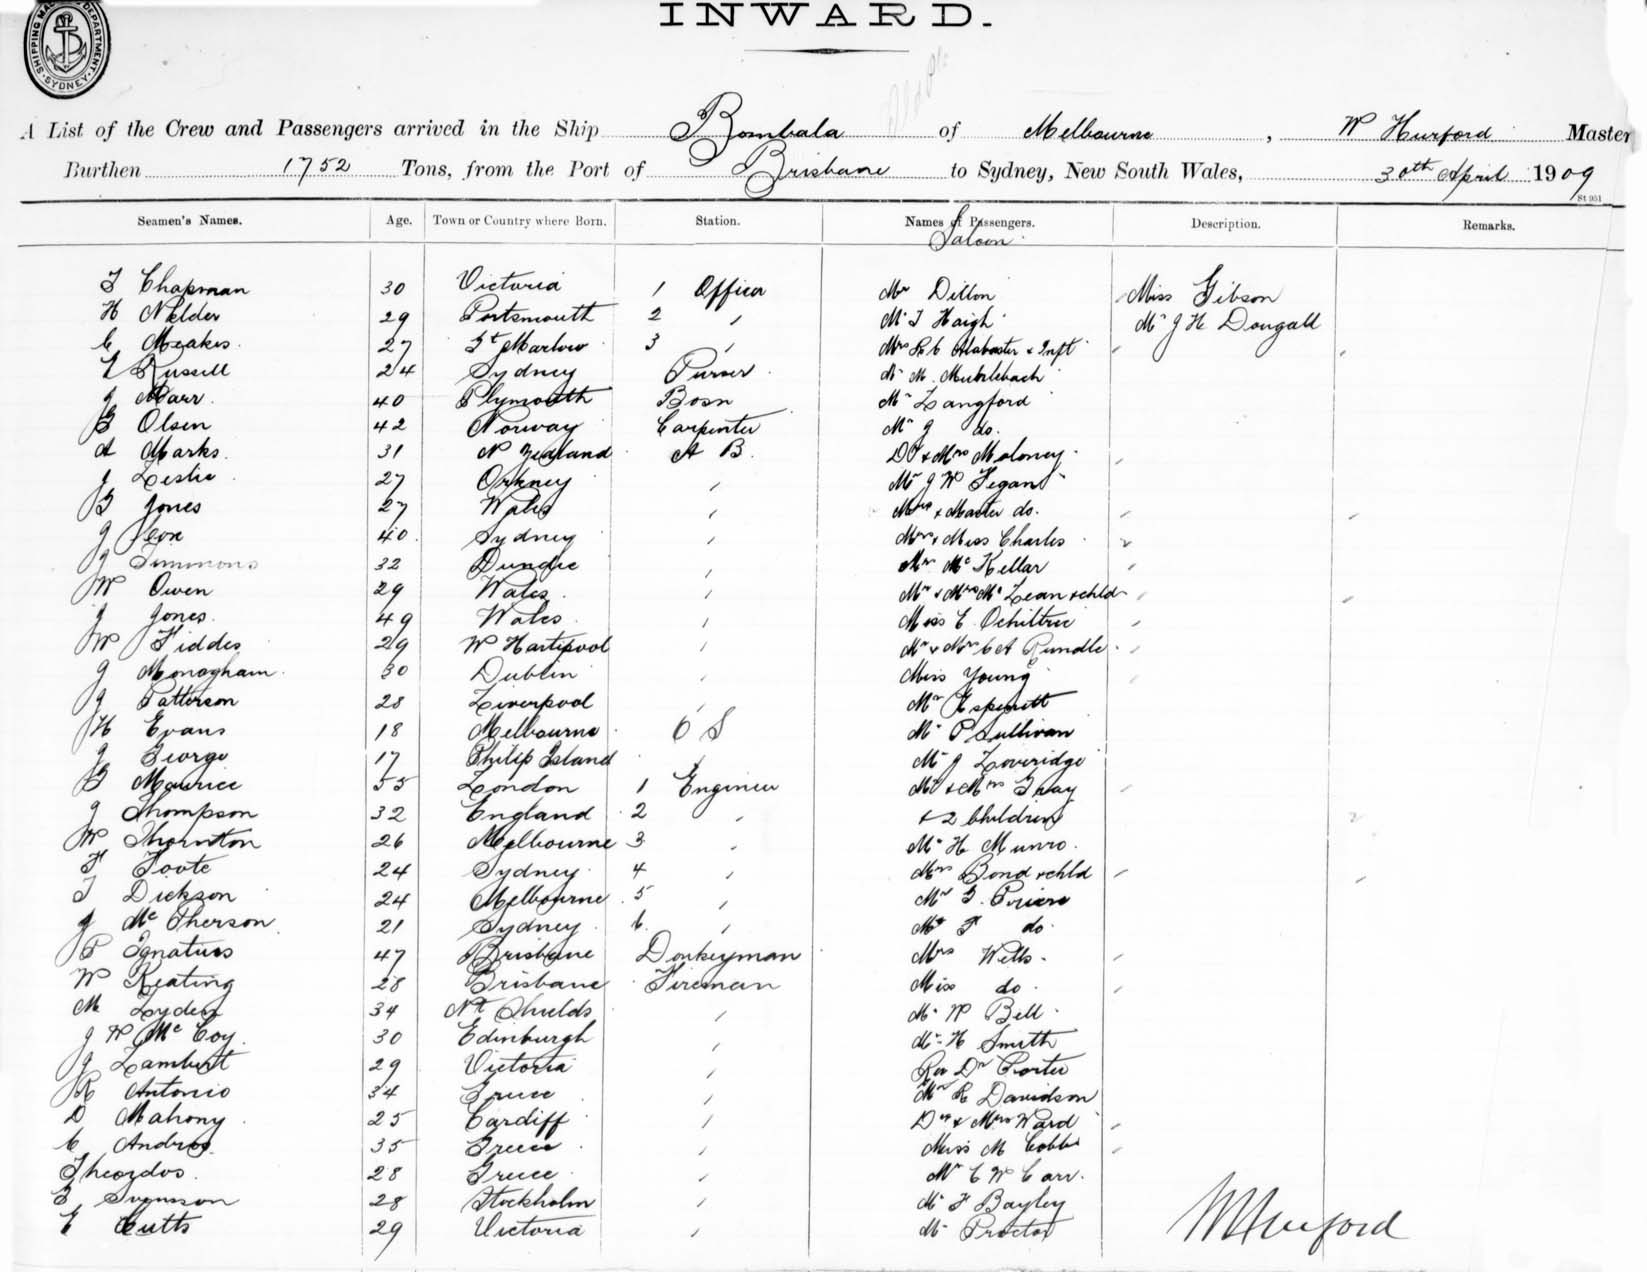 INWARD.
SHIPPING MASTER'S DEPARTMENT SYDNEY
A List of the Crew and Passengers arrived in the Ship Bombala of Melbourne, W Hurford Master
Burthen 1752 Tons, from the Port of Brisbane to Sydney, New South Wales, 30th April 1909
St 951
Seamen's Names. Age. Town or Country where Born. Station. Names of Passengers. Description. Remarks.
Saloon.
Chapman 30 Victoria 1 Officer Mr Dillon Miss Gibson
H Nelder 29 Portsmouth 2 " Mr T Haigh Mr J H Dougall
C Meakes 27 St Marlow 3 " Mrs Alabaster & Inft
Russell 24 Sydney Purser Mr M. Muhlebach
J Marr 40 Plymouth Bosn Mr Langford
B Olsen 42 Norway Carpenter Mr J do.
A Marks 31 N Zealand A B. Dr & Mrs Moloney
J Leslie 27 Orkney " Mr J W Fegan
B Jones 27 Wales " Mrs & Master do.
J Cox 40 Sydney " Mrs & Miss Charles
J Simmons 32 Dundee " Mrs McKellar
W Owen 29 Wales " Mr & Mrs McLean & chld
J Jones 49 Wales " Miss E. Ochiltree
W Fiddes 29 W Hartlepool " Mr & Mrs C A Rundle
J Monagham 30 Dublin " Miss Young
J Patterson 28 Liverpool " Mr
H Evans 18 Melbourne O S Mr O'Sullivan
J George 17 Philip Island " Mr J Loveridge
B Maurice 55 London 1 Engineer Mr & Mrs Gray
J Thompson 32 England 2 " & 2 Children
W Thornton 26 Melbourne 3 " Mr H Munro
F Foote 24 Sydney 4 " Mrs Bond & chld
T Dickson 24 Melbourne 5 " Mr
J McPherson 21 Sydney 6 " Mr F do
P Ignatius 47 Brisbane Donkeyman Mrs Wells
W Keating 28 Brisbane Fireman Miss do
M Lyden 34 Nth Shields " Mr W Bell
J W McCoy 30 Edinburgh " Mr H Smith
J Lambert 29 Victoria " Rev Dr Porter
R Antonio 34 Greece " Mr R Davidson
D Mahony 25 Cardiff " Dr & Mrs Ward
C Andros 35 Greece " Miss M Cobb
Theordos 28 Greece " Mr C W Carr
Svensson 28 Stockholm " Mr F Bayley
E Cutts 29 Victoria " Mr Proctor
W Hurford